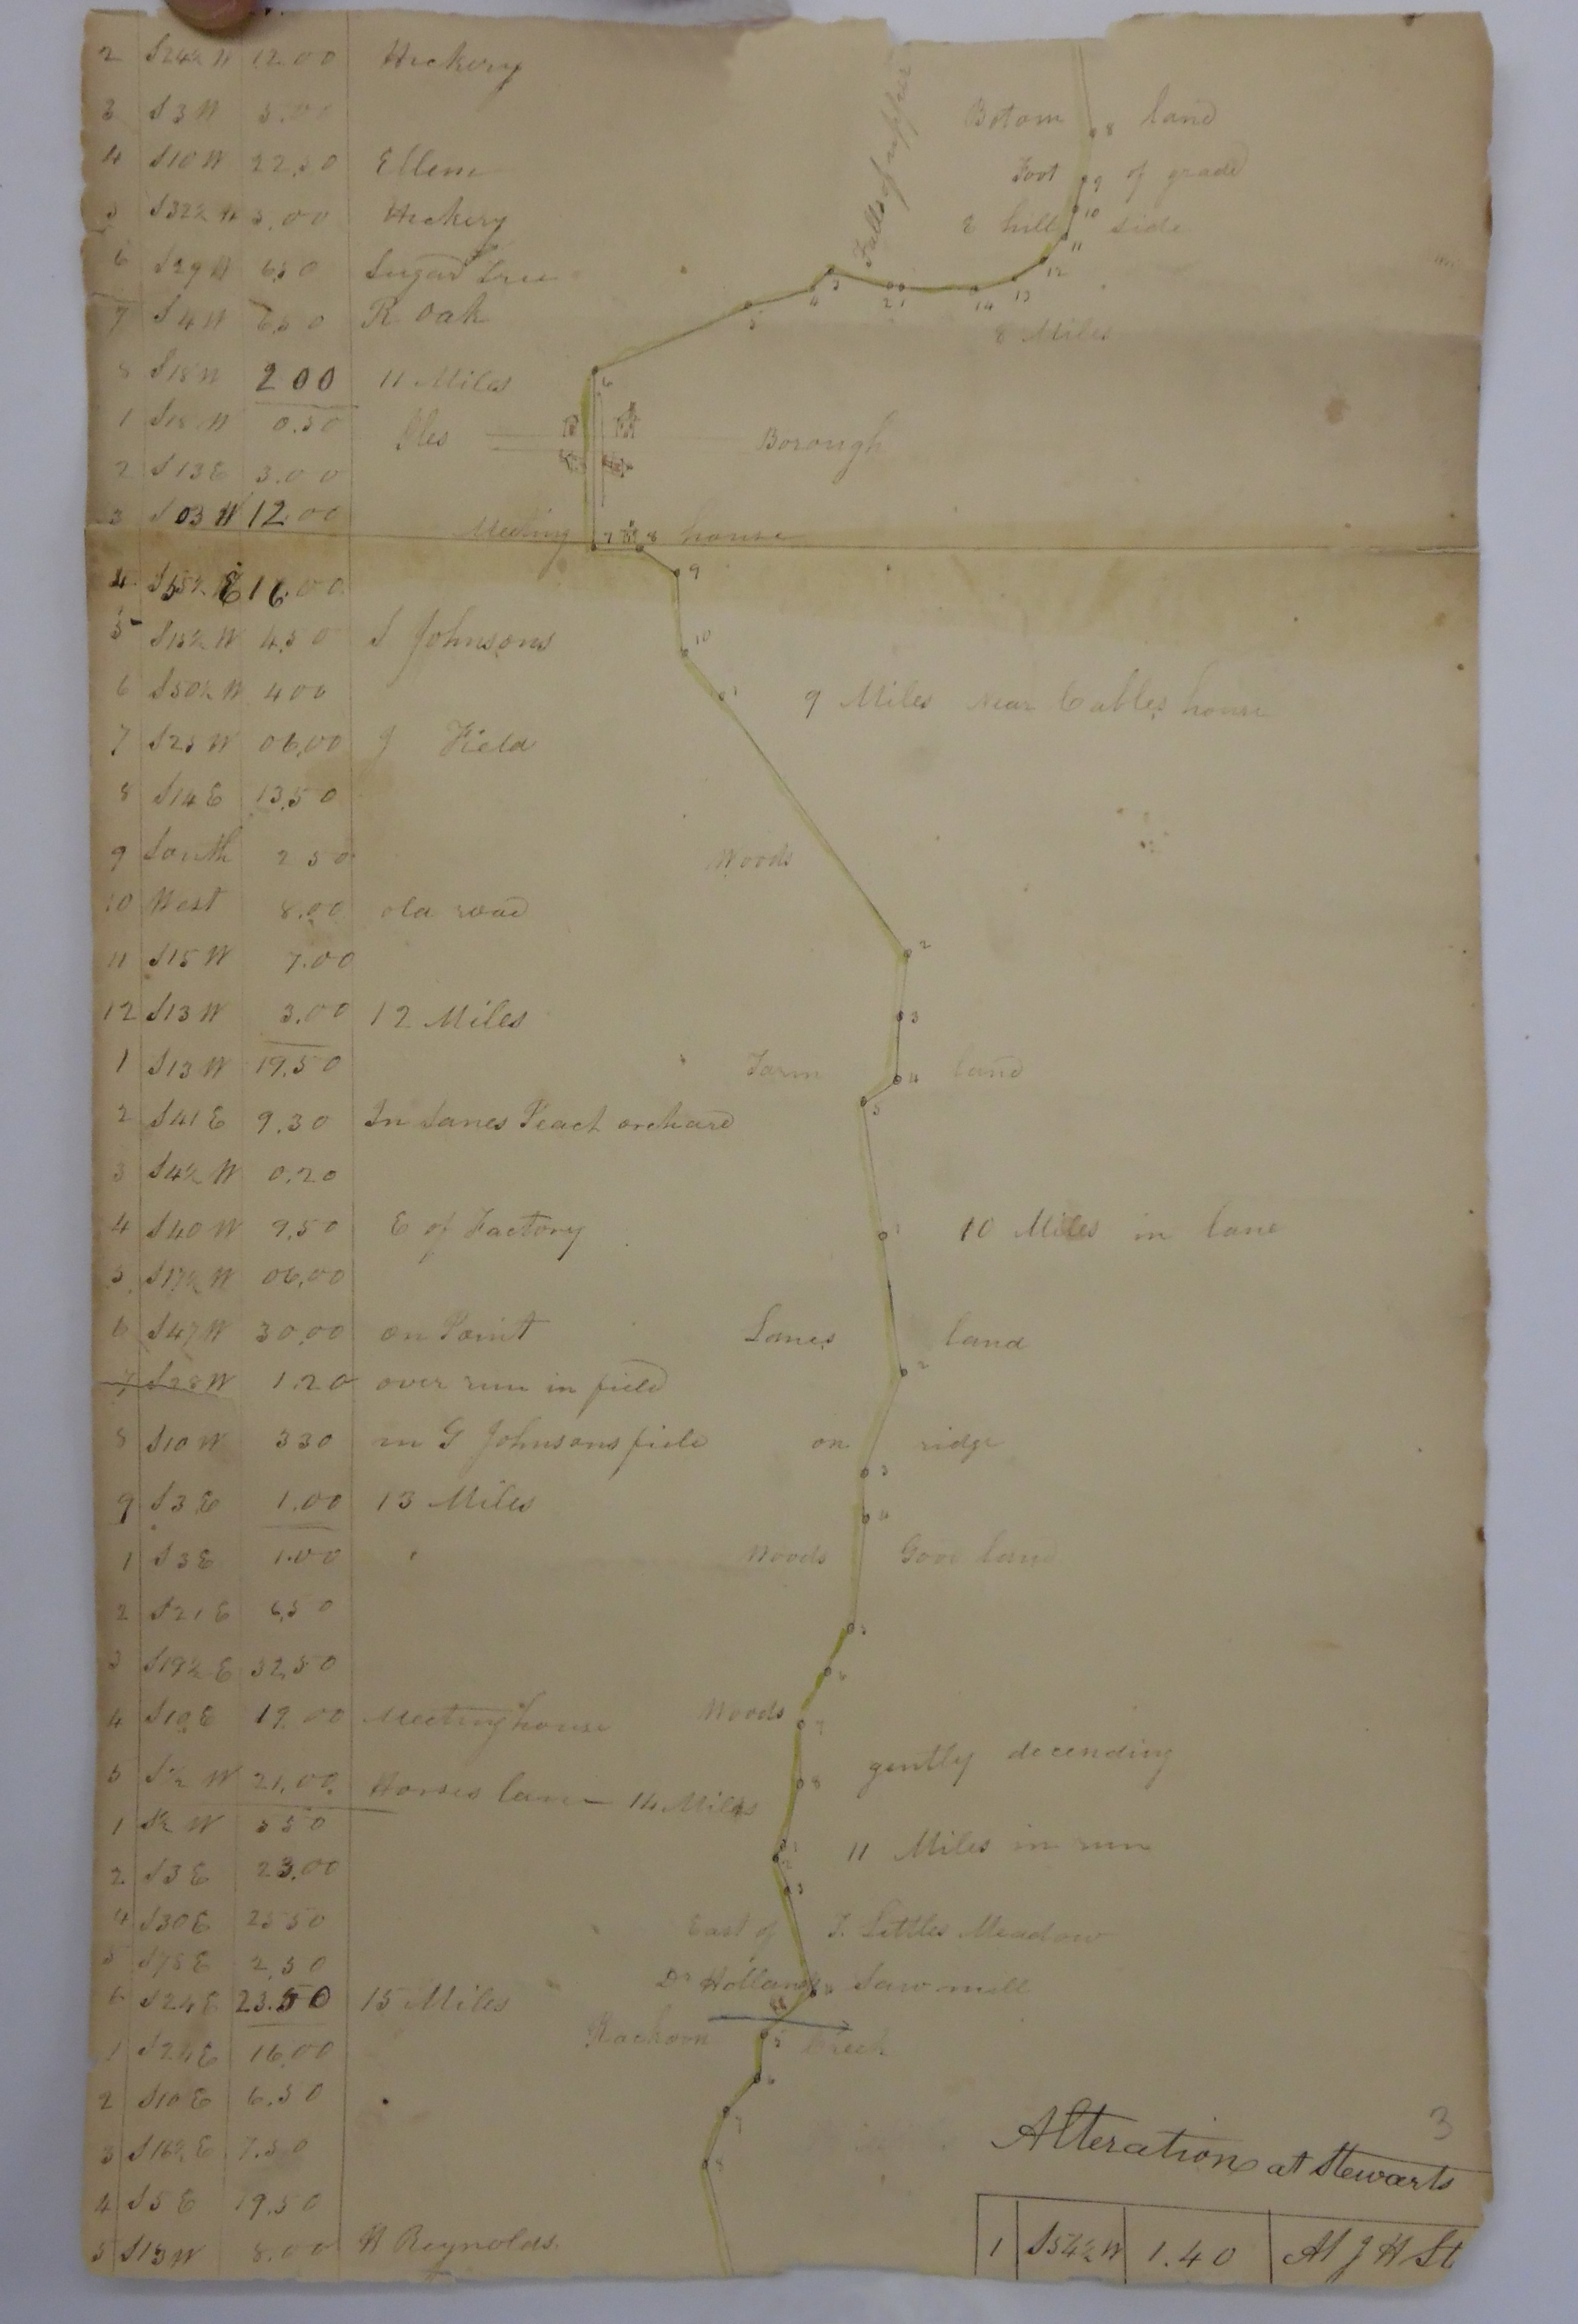 2 S24½ W 12.00 Hickery
3 S3W 5.00
4 S10W 22.50 Ellem
5 S32½ W 3.00 Hickery
6 S29W 6.50 Sugar Tree
7 S4W 6.50 R Oak
8 S18W 2 00 11 Miles
1 S18W 0.50
2 S13E 3.00
3 S03W 12.00
4 S55½ E 16.00
5 S15½ W 4.50 S Johnsons
6 S50½ W 4 00
7 S25W 06.00 J Field
8 S14E 13.50
9 South 2 50
10 West 8.00 old road
11 S15W 7.00
12 S13W 3.00 12 Miles
1 S13W 19.50
2 S41E 9.30 In Lanes Peach orchard
3 S4½ W 0.20
4 S40W 9.50 E of Factory
5 S17½ W 06.00
6 S47W 30.00 on Point
7 S28W 1.20 over run in field
8 S10W 3 30 in G Johnsons field
9 S3E 1.00 13 Miles
1 S3E 1.00
2 S21E 6.50
3 S19½ E 32.50
4 S10E 19.00 Meeting house
5 S½ W 21.00 Horses lane 14 Miles
1 S½ W 5 50
2 S3E 23.00
4 S30E 25 50
5 S75E 2.50
6 S24E 23.50 15 Miles
1 S24E 16.00
2 S10E 6.50
3 S16½ E 7.50
4 S5E 19.50
5 S13W 8.00 H Reynolds
Falls of
Botom 8 land
Foot 9 of grade
10
& hill 11 side
12
13
14
8 Miles
2 1
3
4
5
6
Iles Borough
Meeting 7 8 house
9
10
1
9 Miles Near Cables house
Woods
2
3
Farm 4 land
5
1 10 Miles in lane
Lanes land
2
on ridge
3
4
Woods Good land
5
6
Woods 7
gently decending
8
1
2
11 Miles in run
3
East of T. Littles Meadow
Dr Hollands 4 Saw mill
Rackoon 5 Creek
6
7
8
3
Alteration at Stewarts
1 S54½ W 1.40 At J H St